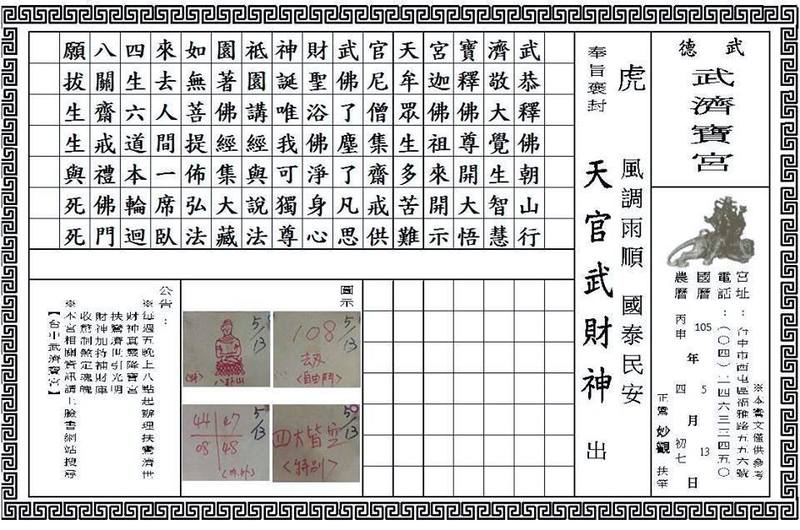 武德
武濟寶宮
※本寶文僅供參考
宮址：台中市西屯區福雅路五五六號
電話：(〇四)二四六三三四五〇
國曆 105 年 5 月 13 日
農曆 丙申 年 四 月 初七 日
正鸞 妙觀 扶筆
虎 風調雨順 國泰民安
奉旨褒封 天官武財神 出
武恭釋佛朝山行
濟敬大覺生智慧
寶釋佛尊開大悟
宮迦佛祖來開示
天牟眾生多苦難
官尼僧集齋戒供
武佛了塵了凡思
財聖浴佛淨身心
神誕唯我可獨尊
祗園講經與說法
園著佛經集大藏
如無菩提佈弘法
來去人間一席臥
四生六道本輪迴
八關齋戒禮佛門
願拔生生與死死
圖示
5/13
108
劫
<自由門>
5/13
八卦山
5/13
四大皆空
<特別>
5/13
44 27
08 48
公告：
※每週五晚上八點起辦理扶鸞濟世
財神真靈降寶宮
扶鸞濟世引光明
財神加持補財庫
收煞制煞定魂魄
※本宮相關資訊請上臉書網站搜尋
【台中武濟寶宮】